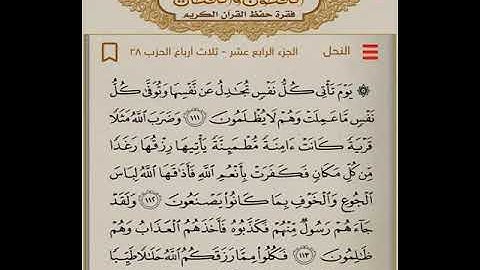 فقرة حفظ القرآن الكريم
النحل
الجزء الرابع عشر - ثلاث أرباع الحزب ٢٨
۞ يَوْمَ تَأْتِي كُلُّ نَفْسٍ تُجَادِلُ عَن نَّفْسِهَا وَتُوَفَّى كُلُّ
نَفْسٍ مَّا عَمِلَتْ وَهُمْ لَا يُظْلَمُونَ ١١١ وَضَرَبَ اللَّهُ مَثَلًا
قَرْيَةً كَانَتْ ءَامِنَةً مُّطْمَئِنَّةً يَأْتِيهَا رِزْقُهَا رَغَدًا
مِّن كُلِّ مَكَانٍ فَكَفَرَتْ بِأَنْعُمِ اللَّهِ فَأَذَاقَهَا اللَّهُ لِبَاسَ
الْجُوعِ وَالْخَوْفِ بِمَا كَانُوا يَصْنَعُونَ ١١٢ وَلَقَدْ
جَاءَهُمْ رَسُولٌ مِّنْهُمْ فَكَذَّبُوهُ فَأَخَذَهُمُ الْعَذَابُ وَهُمْ
ظَالِمُونَ ١١٣ فَكُلُوا مِمَّا رَزَقَكُمُ اللَّهُ حَلَالًا طَيِّبًا